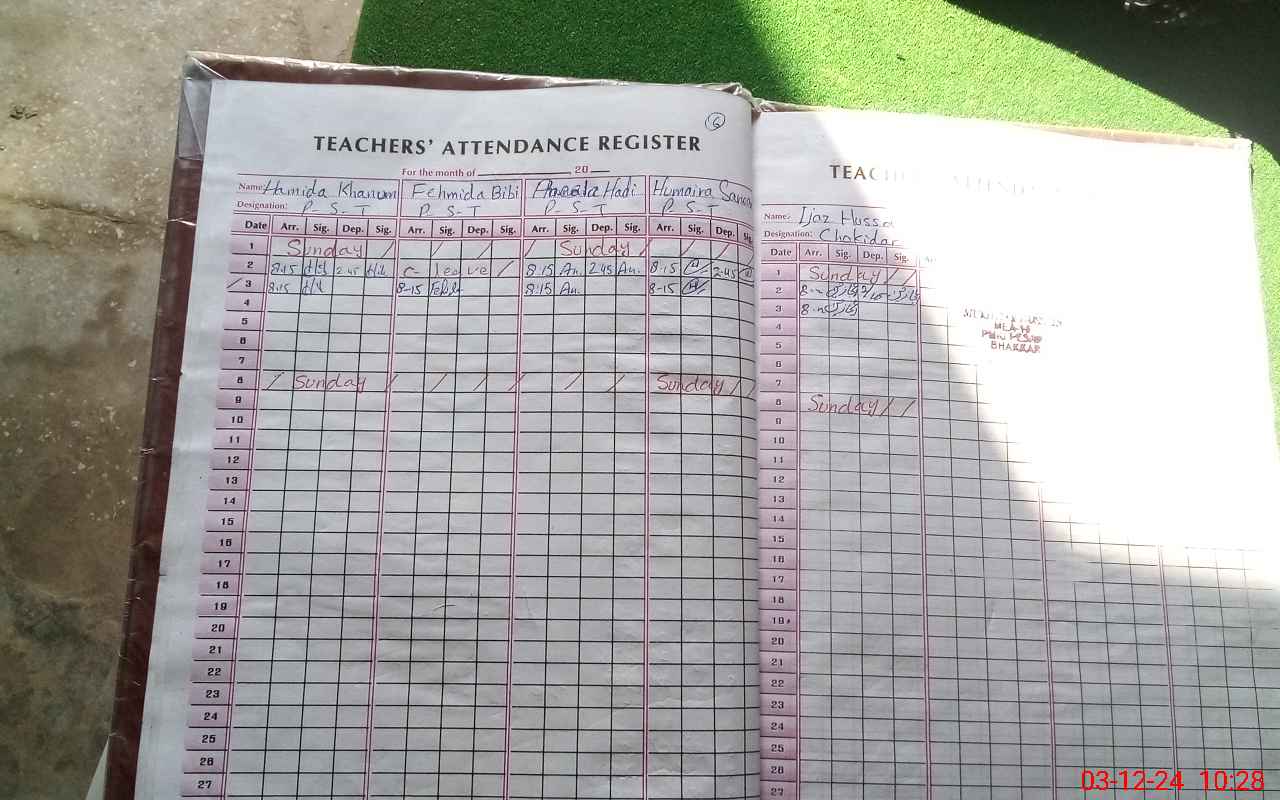 6
TEACHERS' ATTENDANCE REGISTER
For the month of 20
Name: Hamida Khanum Fehmida Bibi Hadi Humaira
Designation: P-S-T P-S-T P-S-T P-S-T
Date Arr. Sig. Dep. Sig. Arr. Sig. Dep. Sig. Arr. Sig. Dep. Sig. Arr. Sig. Dep. Sig.
1 Sunday / / / / Sunday / / / /
2 8.15 2.45 C- leave / 8.15 An. 2.45 An. 8.15 2.45
/ 3 8.15 8-15 8.15 An. 8-15
4
5
6
7
8 / Sunday / / / / / / Sunday / /
9
10
11
12
13
14
15
16
17
18
19
20
21
22
23
24
25
26
27
Name: Ijaz
Designation: Chokidar
Date Arr. Sig. Dep. Sig.
1 Sunday / /
2
3
4
5
6
7
8 Sunday / /
9
10
11
12
13
14
15
16
17
18
19
20
21
22
23
24
25
26
27
BHAKKAR
03-12-24 10:28